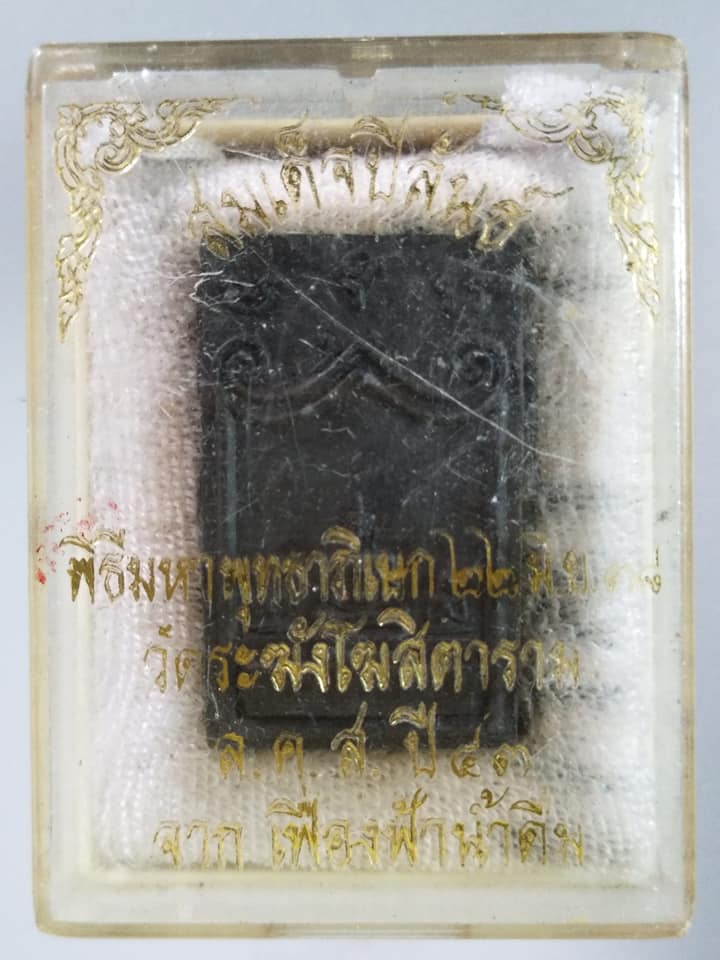 สมเด็จปิลันธ์
พิธีมหาพุทธาภิเษก ๒๒ มิ.ย.
วัดระฆังโฆสิตาราม
ส.ค.ส. ปี ๔๓
จาก เฟื่องฟ้าน้ำดื่ม